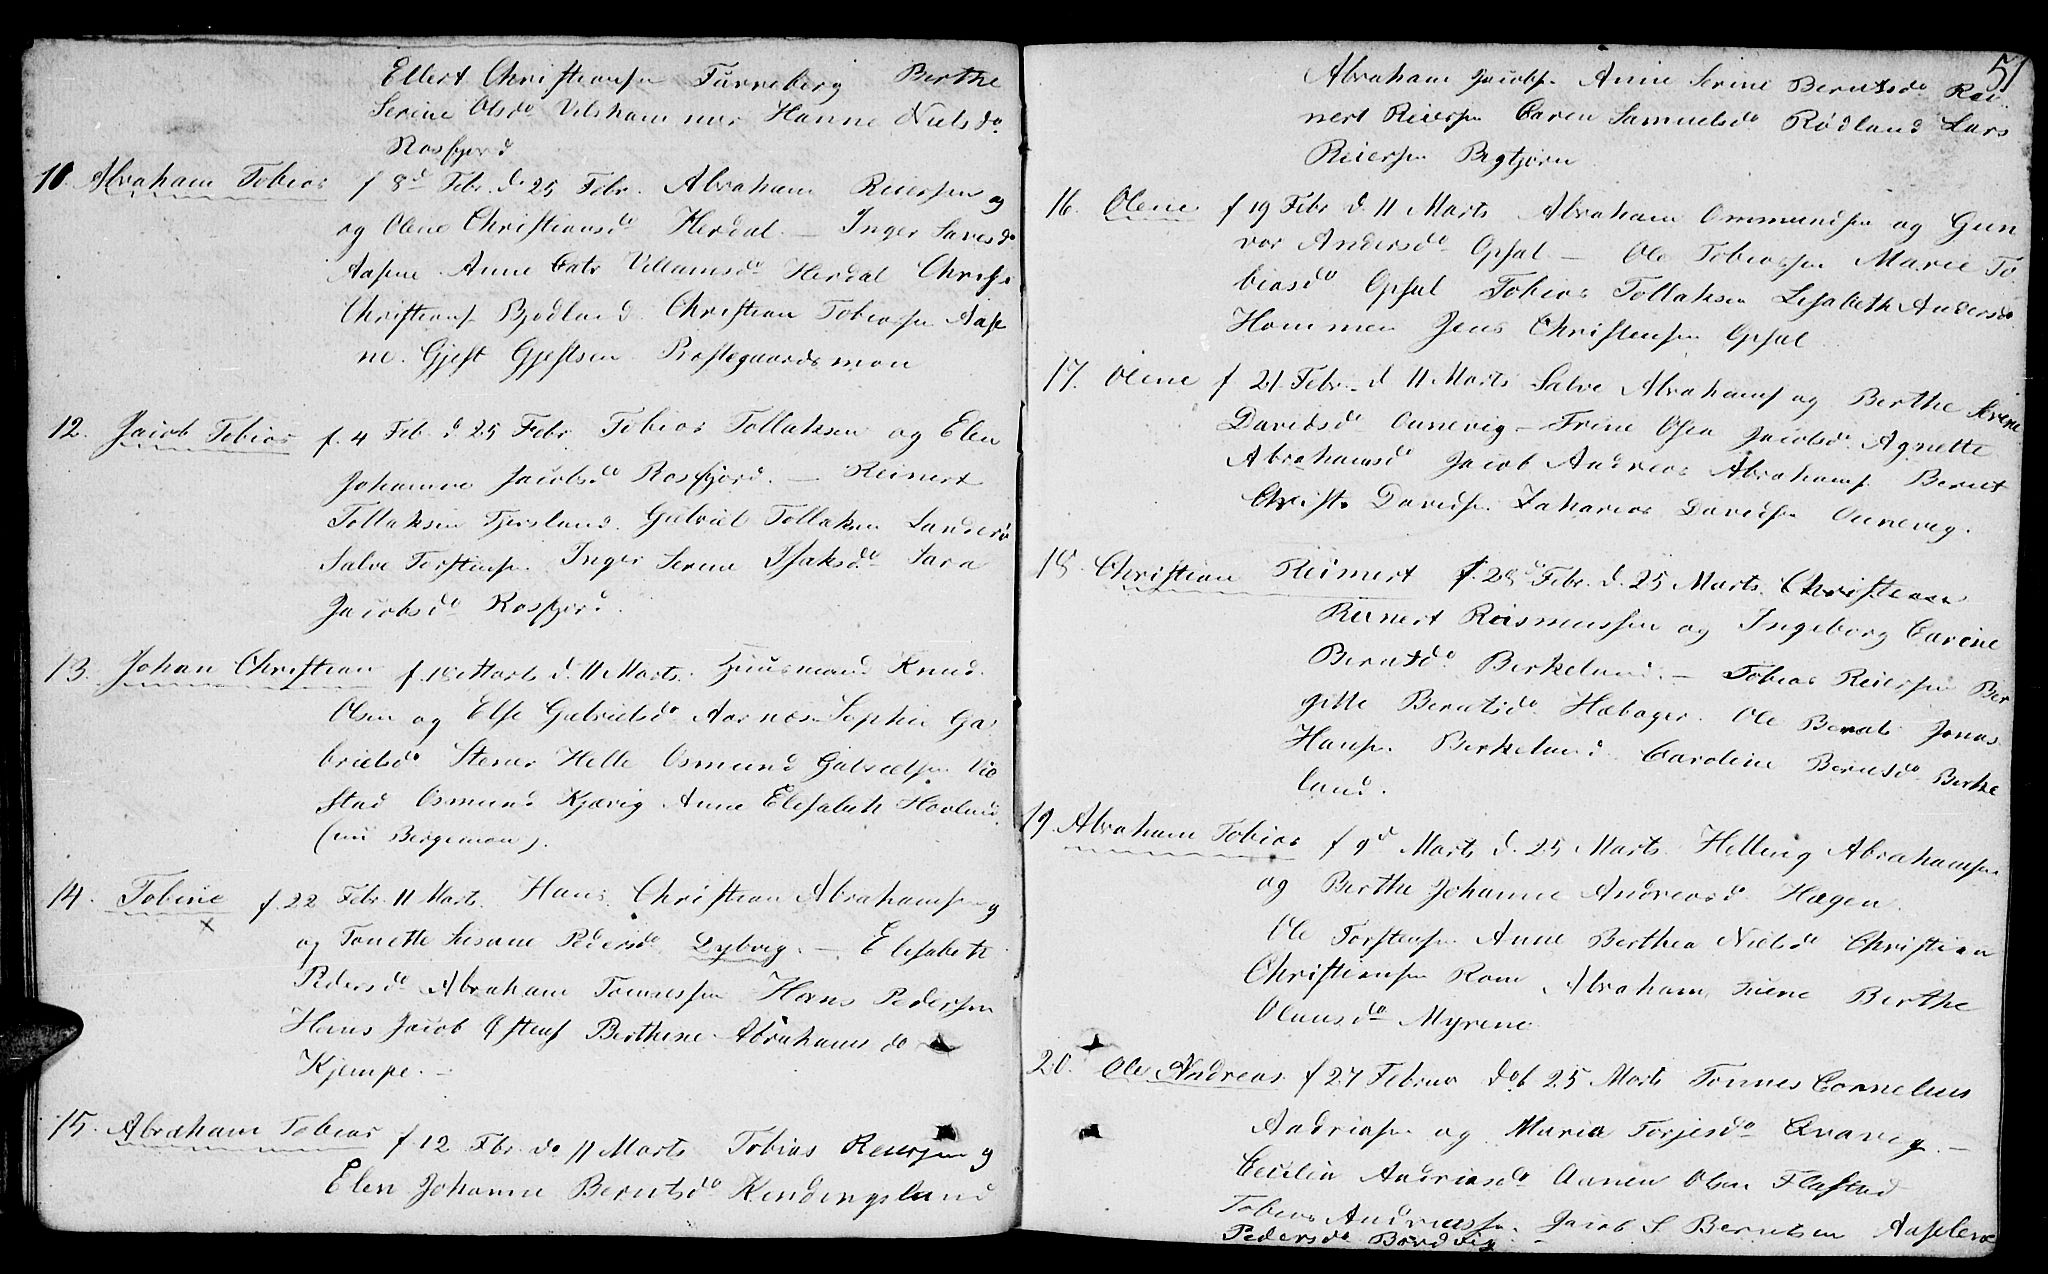 Ellert Christiansen Turneberg Berthe
Serine Olsd Velsham mer Hanne Nielsd
Rosfjord
10. Abraham Tobias f 8d Febr. d. 25 Febr. Abraham Reiersen og
og Olene Christiansd Herdal. — Inger
Aasene Anne Catr Villamsd Herdal Christ
Christians Bjodland. Christian Tobiassen Aase
ne. Gjest Gjestsen Prestegaardsmon
12. Jacob Tobias f. 4 Feb d 25 Febr Tobias Tollaksen og Elen
Johanne Jacobsd Rosfjord. — Reinert
Tollaksen Tjorsland. Gabriel Tollaksen
Salve Torstensen. Inger Serine Isaksd Sara
Jacobsd Rosfjord.
13. Johan Christian f. 18 Marts d. 11 Marts. Huusmand Knud
Olsen og Else Gabrielsd Aarnes. Sophie Ga
brielsd Stener Helle Osmund Gabrielsen
stad Osmund Kjørvig Anna Elisabeth Havland
14. Tobine f. 22 Febr. 11 Marts. Hans Christian Abrahamsen og
og Tonette Susane Pedersd Dybvig. — Elisabeth
Pedersd Abraham Tønnessen Hans Pedersen
Hans Jacob Berthine Abrahamsd
Kjempe. —
15. Abraham Tobias f 12 Fbr. d. 11 Marts Tobias Reiersen og
Elen Johanne Berntsd Kindingsland
51
Abraham Jacobsen Anne Serine Berntsd Rei
nert Reiersen Caren Samuelsd Rødland Lars
Reiersen Bogtjørn
16. Olene f 19 Febr d. 11 Marts Abraham Ommundsen og Gun
vor Andersd Opsal — Ole Tobiassen Marie To
biasd Opsal Tobias Tollaksen Lisabeth Andersd
Hommen Jens Christensen Opsal
17. Olene f 21. Febr. d 11 Marts Salve Abrahams og Berthe Serine
Davidsd Ounevig — Trine Olea Jacobsd Agnette
Abrahamsd Jacob Andreas Abrahams Bernt
Christ. Davidsen. Zakarias Davidsen Ounevig.
18. Christian Reinert f. 28d Febr. d. 25 Marts. Christian
Reinert Rasmussen og Ingeborg Carine
Berntsd Birkeland. — Tobias Reiersen Ber
gitte Berntsd. Hæbager. Ole Bernts Jonas
Hansen Berkeland. Caroline Berntsd Berke
land.
19. Abraham Tobias f 9d Marts d. 25 Marts. Helling Abrahamsen
og Berthe Johanne Andreasd Hægen.
Ole Torstensen Anne Berthea Nielsd Christian
Christiansen Rom Abraham Berthe
Olausd Myrene
20. Ole Andreas f 27 Februar døb 25 Marts Tønnes Cornelius
Andriasen og Maria Torjesd Qvavig. —
Cecilia Andriasd Aanen Olsen Flastad
Tobias Andriassen. Jacob S. Berntsen
Pedersd Bondvig